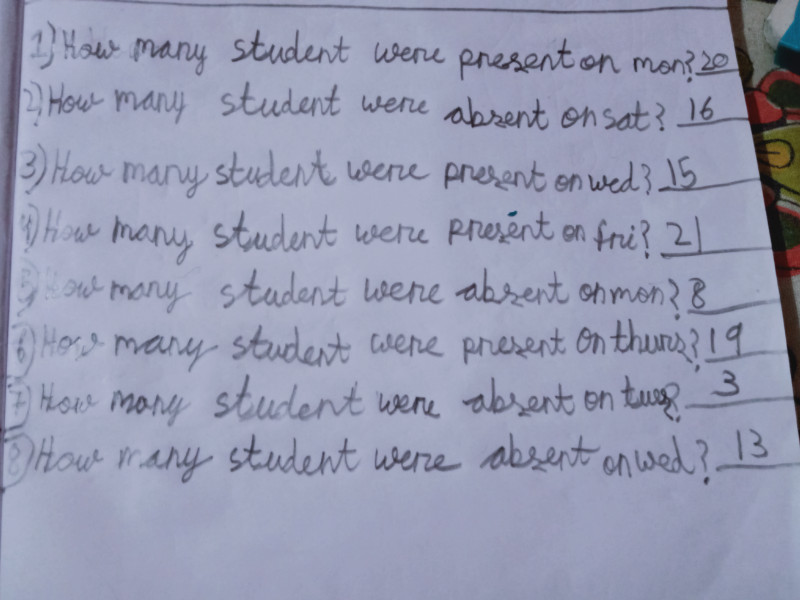 1) How many student were present on mon? 20
2) How many student were absent on sat? 16
3) How many student were present on wed? 15
4) How many student were present on fri? 21
5) How many student were absent on mon? 8
6) How many student were present On thurs? 19
7) How many student were absent on tues? 3
8) How many student were absent on wed? 13